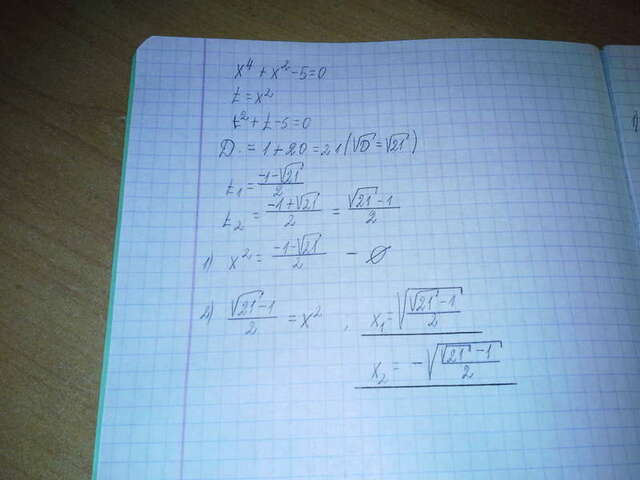 x⁴ + x² - 5 = 0
t = x²
t² + t - 5 = 0
D = 1 + 20 = 21 (√D = √21)
t₁ = (-1-√21)/2
t₂ = (-1+√21)/2 = (√21-1)/2
1) x² = (-1-√21)/2 - ∅
2) (√21-1)/2 = x² , x₁ = √((√21-1)/2)
x₂ = -√((√21-1)/2)